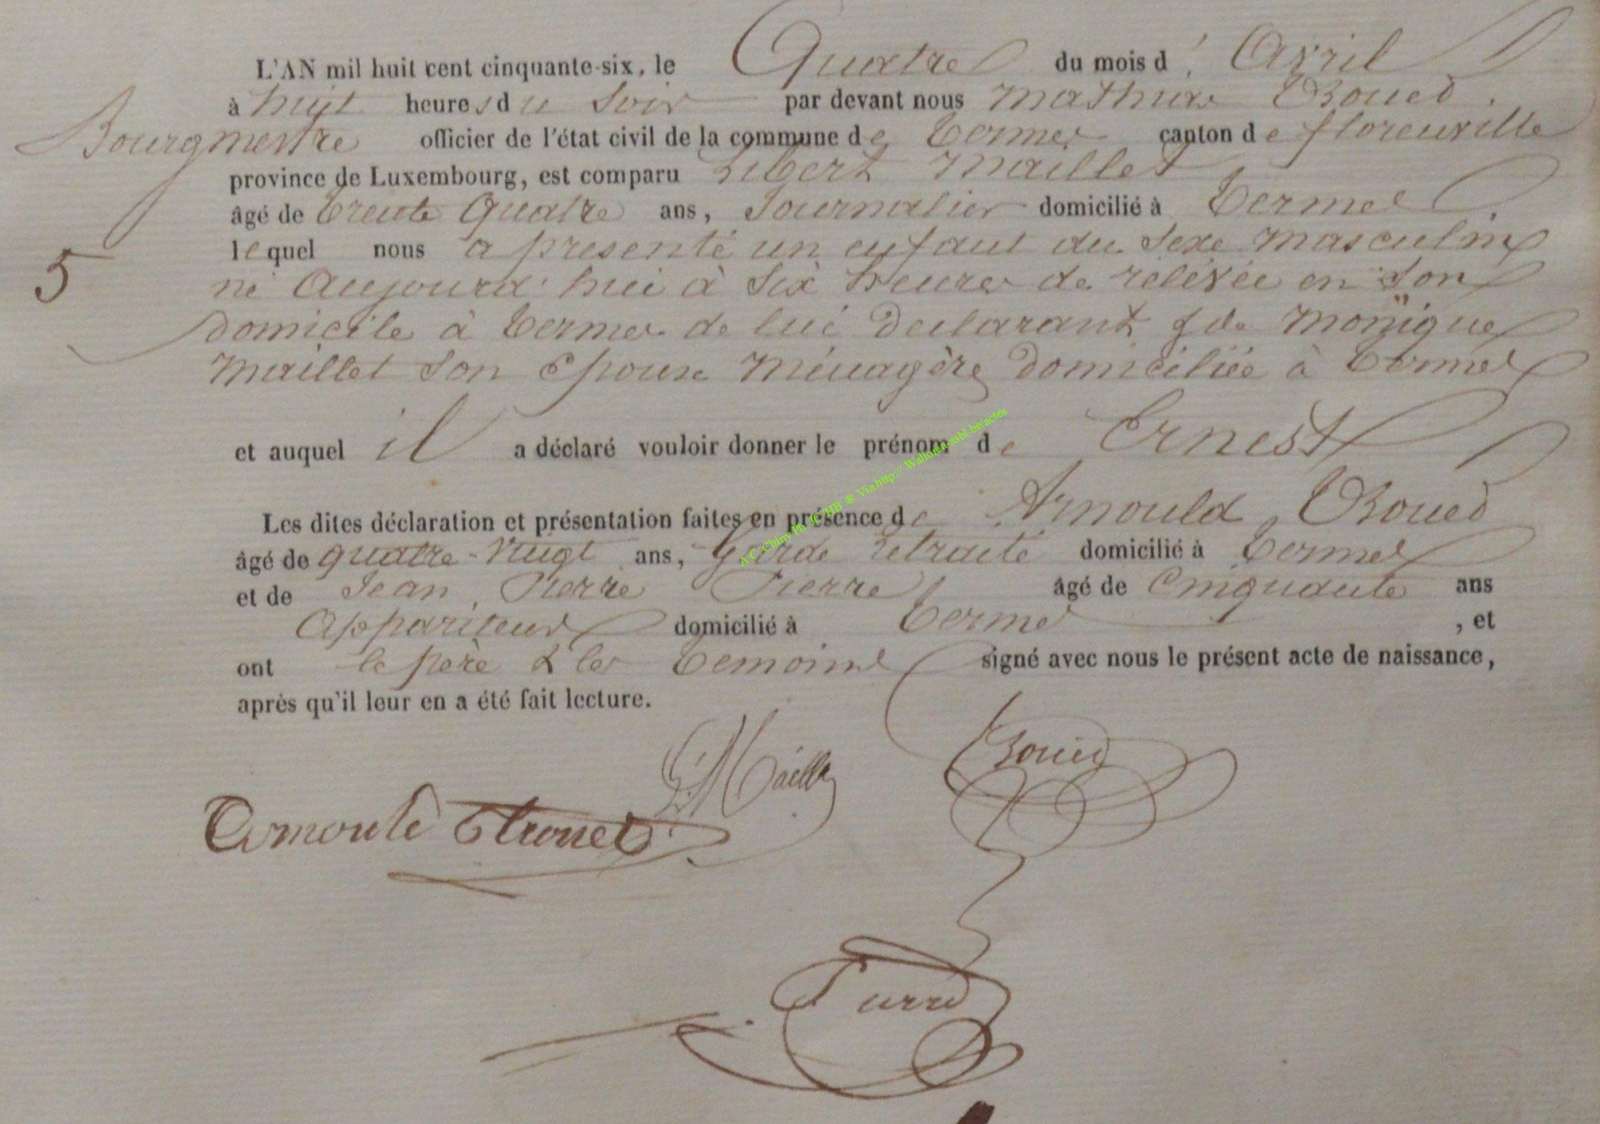 L'AN mil huit cent cinquante-six, le Quatre du mois d' Avril
à huit heures du Soir par devant nous Mathieu Roued
Bourgmestre officier de l'état civil de la commune de Termes canton de florenville
province de Luxembourg, est comparu Libert Maillet
âgé de trente Quatre ans, Journalier domicilié à Termes
5 lequel nous a presenté un enfant du Sexe Masculin
né Aujourd'hui à Six heures de relévée en Son
domicile à Termes de lui Declarant & de Monique
Maillet Son Epouse Ménagère domiciliée à Termes
et auquel il a déclaré vouloir donner le prénom de Ernest
Les dites déclaration et présentation faites en présence de Arnould Roued
âgé de quatre-vingt ans, Garde retraité domicilié à Termes
et de Jean Pierre Pierre âgé de Cinquante ans
Appariteur domicilié à Termes , et
ont le père & les temoins signé avec nous le présent acte de naissance,
après qu'il leur en a été fait lecture.
L. Maillet Roued
Arnould
Pierre